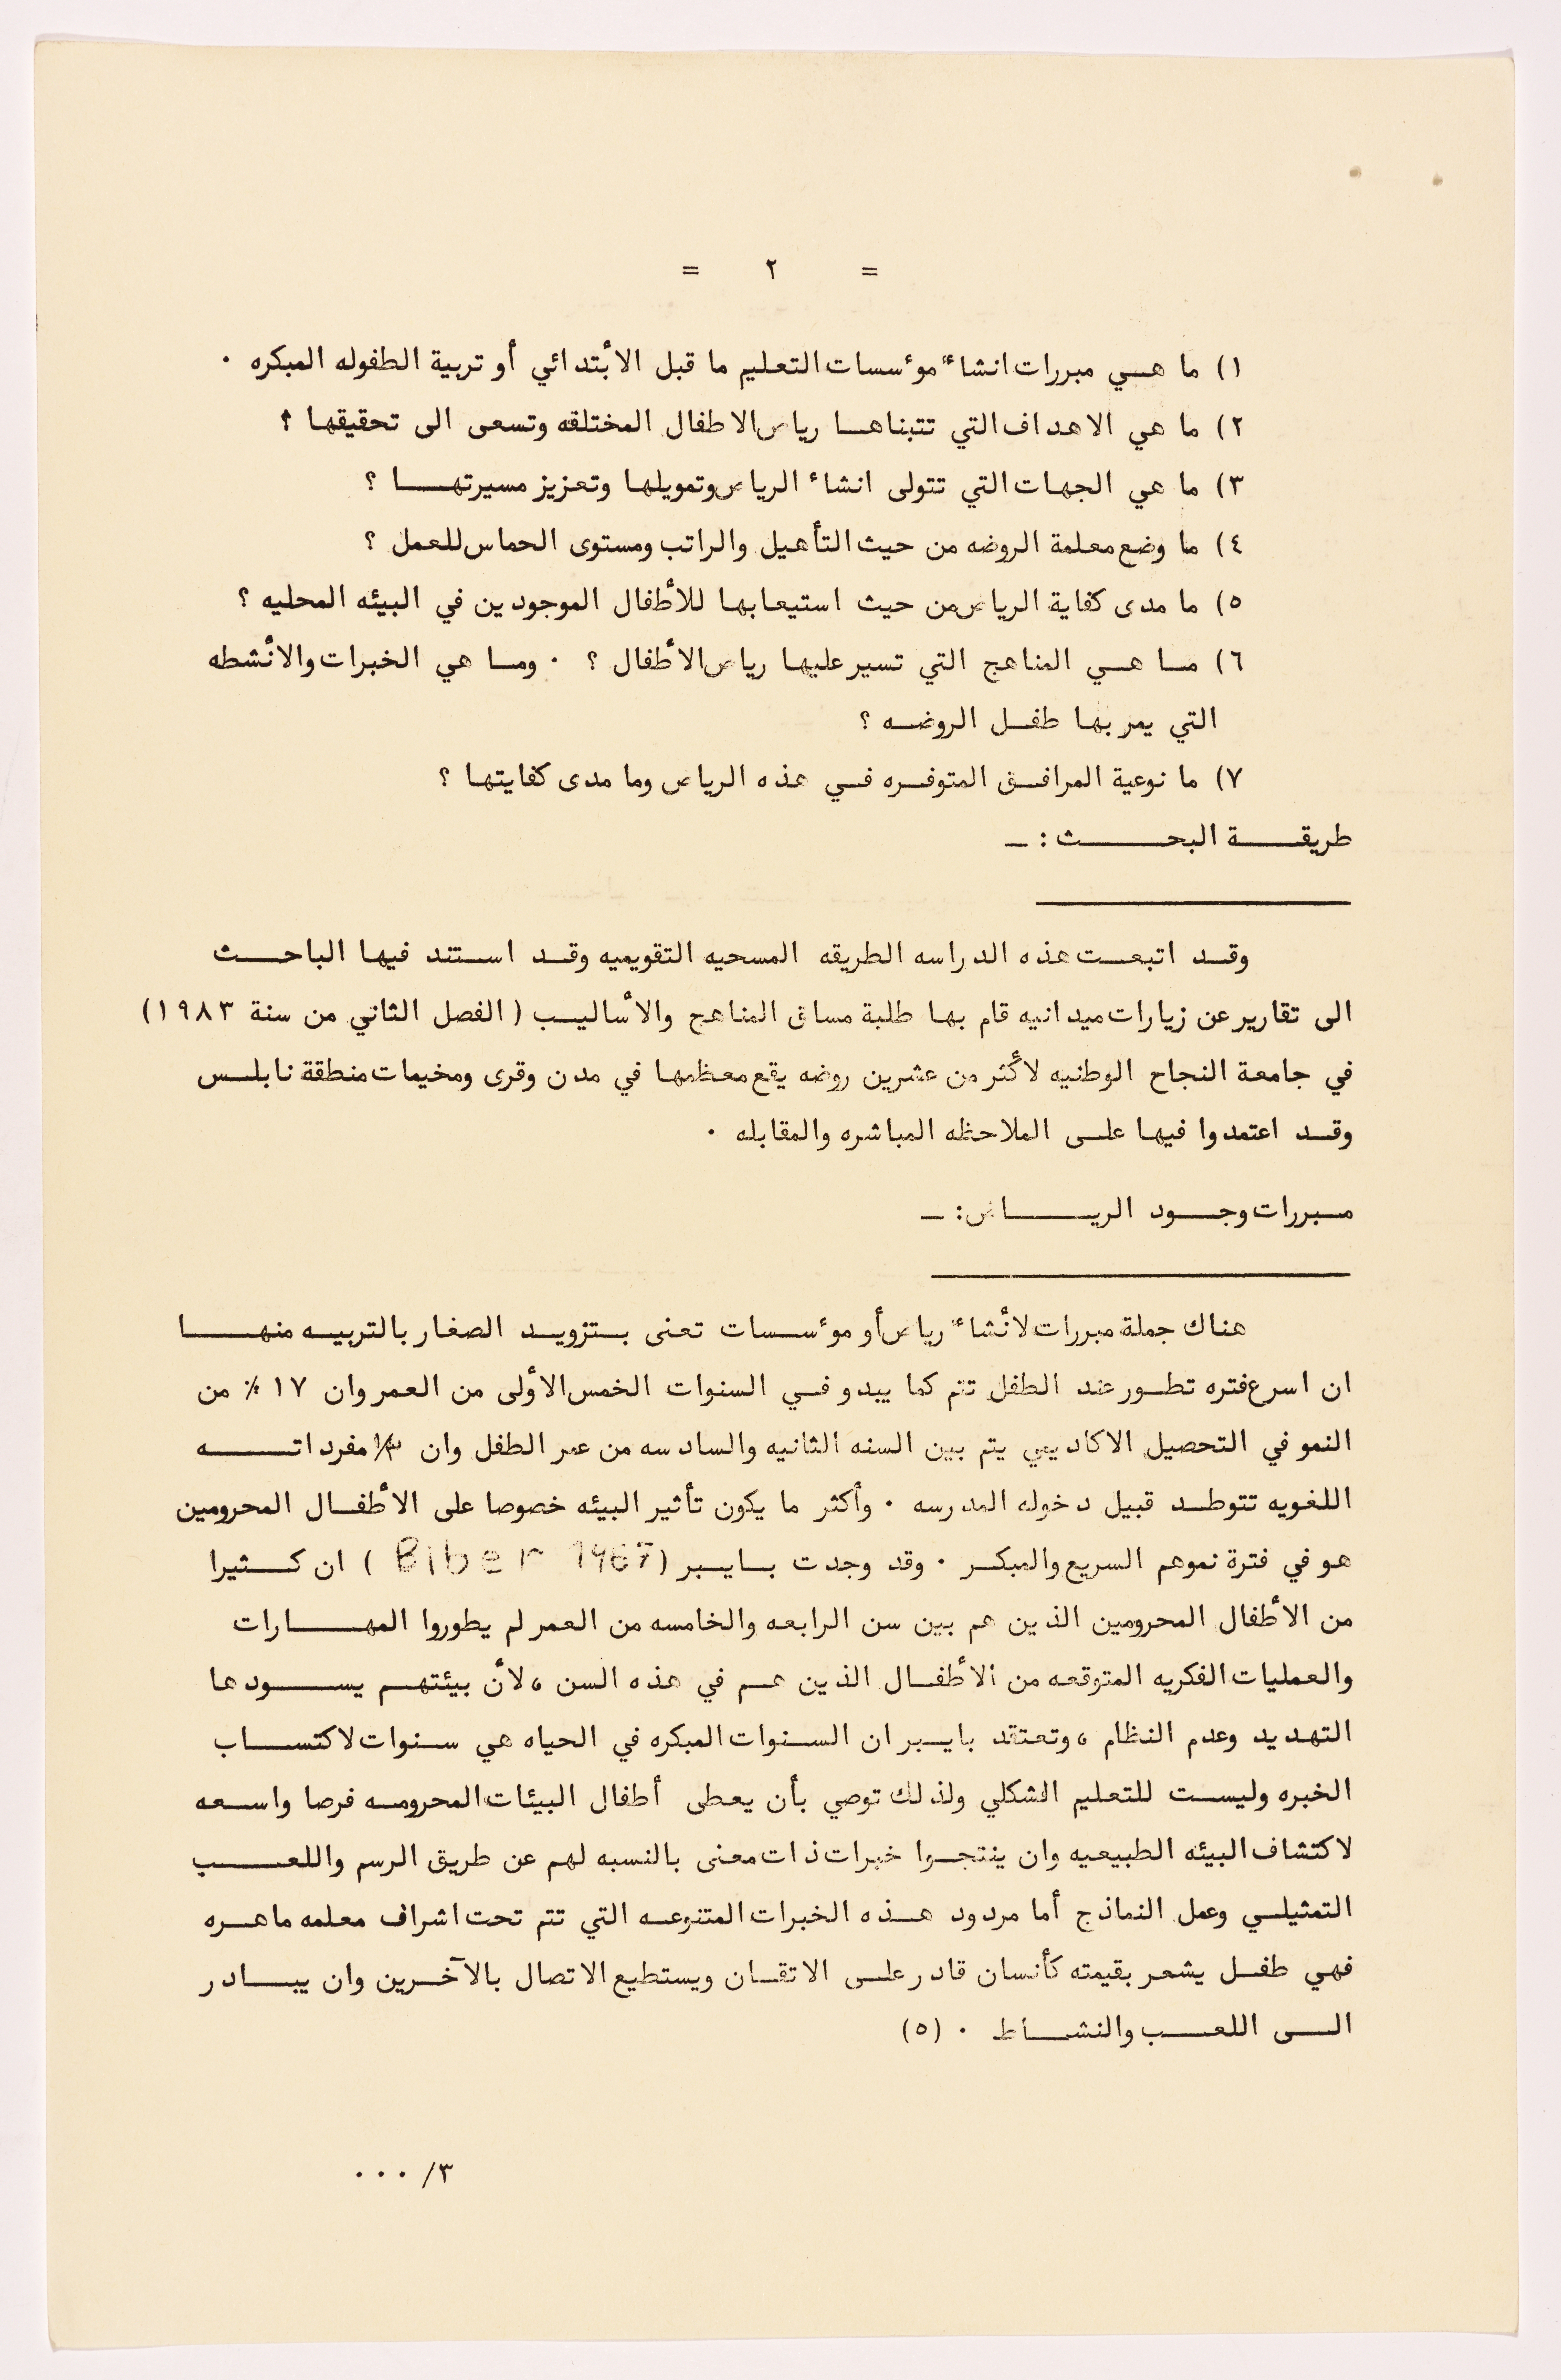 = ٢ =
١) ما هي مبررات انشاء مؤسسات التعليم ما قبل الأبتدائي أو تربية الطفوله المبكره ٠
٢) ما هي الاهداف التي تتبناها رياض الاطفال المختلقه وتسعى الى تحقيقها ؟
٣) ما هي الجهات التي تتولى انشاء الرياض وتمويلها وتعزيز مسيرتها ؟
٤) ما وضع معلمة الروضه من حيث التأهيل والراتب ومستوى الحماس للعمل ؟
٥) ما مدى كفاية الرياض من حيث استيعابها للأطفال الموجودين في البيئه المحليه ؟
٦) ما هي المناهج التي تسير عليها رياض الأطفال ؟ ٠ وما هي الخبرات والأنشطه
التي يمر بها طفل الروضه ؟
٧) ما نوعية المرافق المتوفره في هذه الرياض وما مدى كفايتها ؟
طريقة البحث : ـ
وقد اتبعت هذه الدراسه الطريقه المسحيه التقويميه وقد استند فيها الباحث
الى تقارير عن زيارات ميدانيه قام بها طلبة مساق المناهج والأساليب ( الفصل الثاني من سنة ١٩٨٣)
في جامعة النجاح الوطنيه لأكثر من عشرين روضه يقع معظمها في مدن وقرى ومخيمات منطقة نابلس
وقد اعتمدوا فيها على الملاحظه المباشره والمقابله ٠
مبررات وجود الرياض : ـ
هناك جملة مبررات لأنشاء رياض أو مؤسسات تعنى بتزويد الصغار بالتربيه منها
ان اسرع فتره تطور عند الطفل تتم كما يبدو في السنوات الخمس الأولى من العمر وان ١٧ ٪ من
النمو في التحصيل الاكاديمي يتم بين السنه الثانيه والسادسه من عمر الطفل وان مفرداته
اللغويه تتوطد قبيل دخوله المدرسه ٠ وأكثر ما يكون تأثير البيئه خصوصا على الأطفال المحرومين
هو في فترة نموهم السريع والمبكر ٠ وقد وجدت بايبر ( Biber 1967 ) ان كثيرا
من الأطفال المحرومين الذين هم بين سن الرابعه والخامسه من العمر لم يطوروا المهارات
والعمليات الفكريه المتوقعه من الأطفال الذين هم في هذه السن ، لأن بيئتهم يسودها
التهديد وعدم النظام ، وتعتقد بايبر ان السنوات المبكره في الحياه هي سنوات لاكتساب
الخبره وليست للتعليم الشكلي ولذلك توصي بأن يعطى أطفال البيئات المحرومه فرصا واسعه
لاكتشاف البيئه الطبيعيه وان ينتجوا خبرات ذات معنى بالنسبه لهم عن طريق الرسم واللعب
التمثيلي وعمل النماذج أما مردود هذه الخبرات المتنوعه التي تتم تحت اشراف معلمه ماهره
فهي طفل يشعر بقيمته كأنسان قادر على الاتقان ويستطيع الاتصال بالآخرين وان يبادر
الى اللعب والنشاط ٠ (٥)
٣/ ٠٠٠